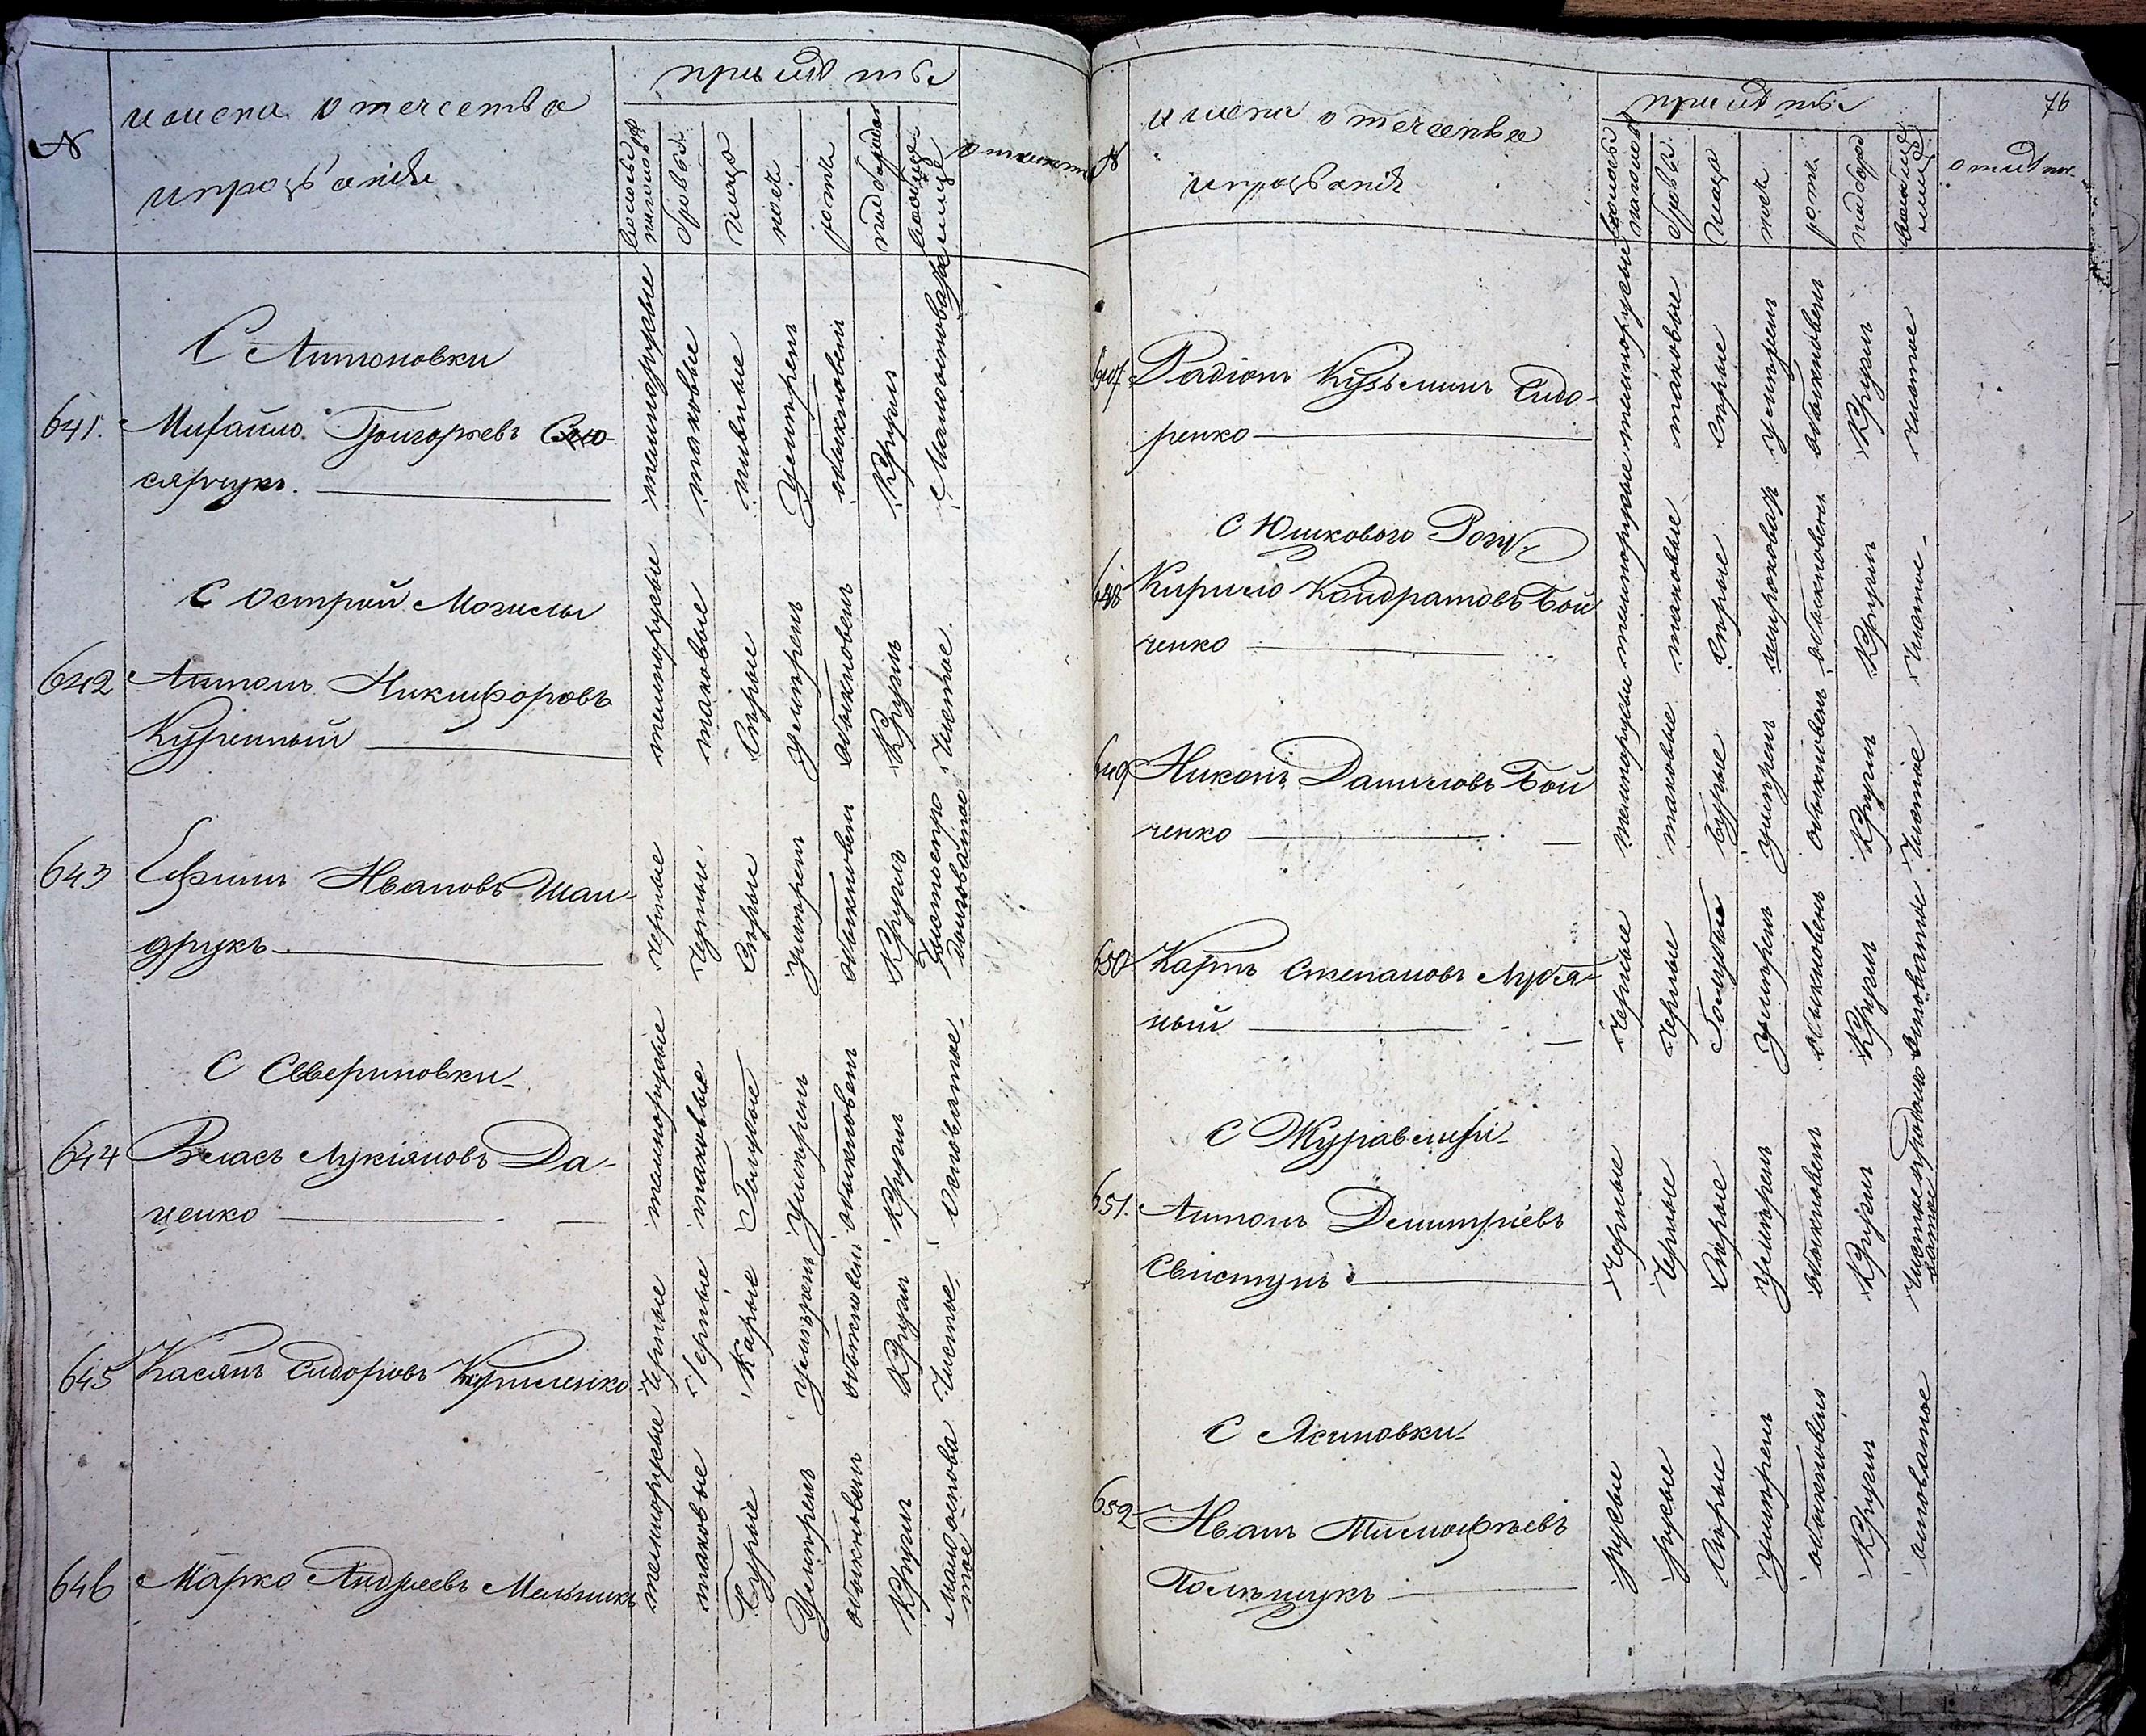 №
имена отечества
ипрозванiя
примѣты
волосы наголовѣ
бровы
глаза
носъ
ротъ
подбородокъ
вообще лице
С Антоновки
641. Михайло Григорьевъ Слю-
сярчукъ.
темнорусые
таковые
пивные
умѣренъ
обыкновенъ
Круглъ
Малоосповат
С Острой Могилы
642 Антонъ Никифоровъ
Куренный
темнорусые
таковые
Сѣрые
умѣренъ
обыкновенъ
Круглъ
Чистое.
643 Ефимъ Ивановъ Шан-
друкъ
черные
черные
Сѣрые
умѣренъ
обыкновенъ
Круглъ
Чистоепро
долговатое
С Севериновки
644 Власъ Лукiяновъ Да-
ценко
темнорусые
таковые
Голубые
умѣренъ
обыкновенъ
Круглъ
Осповатое
645 Касянъ Сидоровъ Кориленко
черные
Черные
Карые
умѣренъ
обыкновенъ
Круглъ
Чистое.
646 Марко Андреевъ Мельникъ
темнорусые
таковые
Бурые
Умѣренъ
обыкновенъ
Круглъ
мало оспова
тое
76
№
имена отечества
ипрозванiя
примѣты
волосы наголовѣ
бровы
глаза
носъ
ротъ
подборо
вообще лице
отмѣтки
647 Радiонъ Кузьминъ Сидо-
ренко
темнорусые
таковые
сѣрые
умѣренъ
обыкновенъ
Круглъ
чистое
С Юшкового Рогу
648 Кирило Кондратовъ Бой
ченко
темнорусые
таковые
сѣрые
широковат
обыкновенъ
Круглъ
чистое
649 Никонъ Даниловъ Бой
ченко
темнорусы
таковые
бурые
умѣренъ
обыкновенъ
Круглъ
Чистое
650 Карпъ Степановъ Лубя-
ный
черные
черные
Голубые
Умѣренъ
обыкновенъ
Круглъ
осповатое
С Журавлихи
651. Антонъ Демитрiевъ
Свистунъ
черные
черные
Сѣрые
умѣренъ
обыкновенъ
Круглъ
Чистое продолго
ватое
С Ясиновки
652 Иванъ Тимофѣевъ
Полѣщукъ
русые
русые
Сѣрые
умѣренъ
обыкновенъ
Круглъ
осповатое